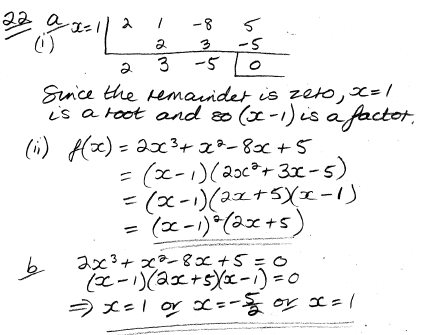 22 a x=1 | 2 1 -8 5
(i) 2 3 -5
2 3 -5 | 0
Since the remainder is zero, x=1
is a root and so (x-1) is a factor.
(ii) f(x) = 2x³ + x² - 8x + 5
= (x-1)(2x²+3x-5)
= (x-1)(2x+5)(x-1)
= (x-1)²(2x+5)
b 2x³ + x² - 8x + 5 = 0
(x-1)(2x+5)(x-1) = 0
⇒ x = 1 or x = -5/2 or x = 1